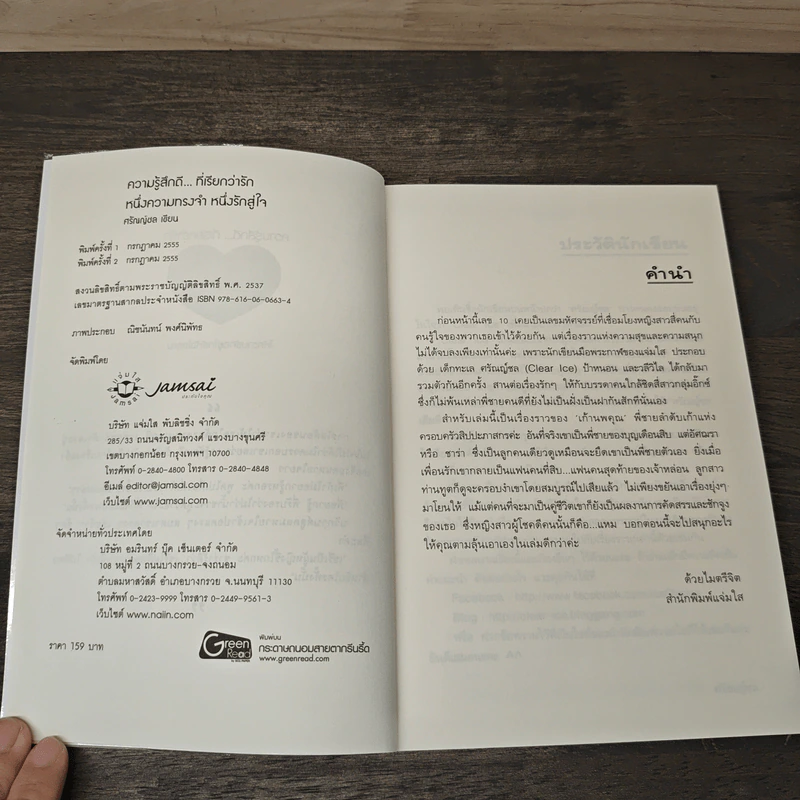 ความรู้สึกดี... ที่เรียกว่ารัก
หนึ่งความทรงจำ หนึ่งรักสู่ใจ
ศรัณญ์ชล เขียน
พิมพ์ครั้งที่ 1 กรกฎาคม 2555
พิมพ์ครั้งที่ 2 กรกฎาคม 2555
สงวนลิขสิทธิ์ตามพระราชบัญญัติลิขสิทธิ์ พ.ศ. 2537
เลขมาตรฐานสากลประจำหนังสือ ISBN 978-616-06-0663-4
ภาพประกอบ ณิชนันทน์ พงศ์นิพัทธ
จัดพิมพ์โดย
jamsai
บริษัท แจ่มใส พับลิชชิ่ง จำกัด
285/33 ถนนจรัญสนิทวงศ์ แขวงบางขุนศรี
เขตบางกอกน้อย กรุงเทพฯ 10700
โทรศัพท์ 0-2840-4800 โทรสาร 0-2840-4848
อีเมล์ editor@jamsai.com
เว็บไซต์ www.jamsai.com
จัดจำหน่ายทั่วประเทศโดย
บริษัท อมรินทร์ บุ๊ค เซ็นเตอร์ จำกัด
108 หมู่ที่ 2 ถนนบางกรวย-จงถนอม
ตำบลมหาสวัสดิ์ อำเภอบางกรวย จ.นนทบุรี 11130
โทรศัพท์ 0-2423-9999 โทรสาร 0-2449-9561-3
เว็บไซต์ www.naiin.com
ราคา 159 บาท
Green Read
พิมพ์บน
กระดาษถนอมสายตากรีนรี้ด
www.greenread.com
ประวัตินักเขียน
คำนำ
ก่อนหน้านี้เลข 10 เคยเป็นเลขมหัศจรรย์ที่เชื่อมโยงหญิงสาวสี่คนกับ
คนรู้ใจของพวกเธอเข้าไว้ด้วยกัน แต่เรื่องราวแห่งความสุขและความสนุก
ไม่ได้จบลงเพียงเท่านั้นค่ะ เพราะนักเขียนมือพระกาฬของแจ่มใส ประกอบ
ด้วย เด็กทะเล ศรัณญ์ชล (Clear Ice) ป้าหนอน และวลีวิไล ได้กลับมา
รวมตัวกันอีกครั้ง สานต่อเรื่องรักๆ ให้กับบรรดาคนใกล้ชิดสี่สาวกลุ่มอิ๊กซ์
ซึ่งก็ไม่พ้นเหล่าพี่ชายคนดีที่ยังไม่เป็นฝั่งเป็นฝากันสักทีนั่นเอง
สำหรับเล่มนี้เป็นเรื่องราวของ 'เก้านพคุณ' พี่ชายลำดับเก้าแห่ง
ครอบครัวสิปประภาสกรค่ะ อันที่จริงเขาเป็นพี่ชายของบุญเตือนสิบ แต่อัศฌรา
หรือ ซาร่า ซึ่งเป็นลูกคนเดียวดูเหมือนจะยึดเขาเป็นพี่ชายตัวเอง ยิ่งเมื่อ
เพื่อนรักเขากลายเป็นแฟนคนที่สิบ...แฟนคนสุดท้ายของเจ้าหล่อน ลูกสาว
ท่านทูตก็ดูจะครอบงำเขาโดยสมบูรณ์ไปเสียแล้ว ไม่เพียงขยันเอาเรื่องยุ่งๆ
มาโยนให้ แม้แต่คนที่จะมาเป็นคู่ชีวิตเขาก็ยังเป็นผลงานการคัดสรรและชักจูง
ของเธอ ซึ่งหญิงสาวผู้โชคดีคนนั้นก็คือ...แหม บอกตอนนี้จะไปสนุกอะไร
ให้คุณตามลุ้นเอาเองในเล่มดีกว่าค่ะ
ด้วยไมตรีจิต
สำนักพิมพ์แจ่มใส